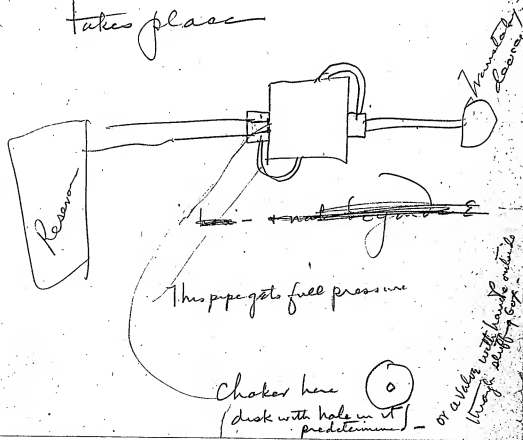 takes place
device
Reservo
This pipe gets full pressure
Choker here
(disk with hole in it
predetermined)
or a Valve with handle outside
through stuffing box -